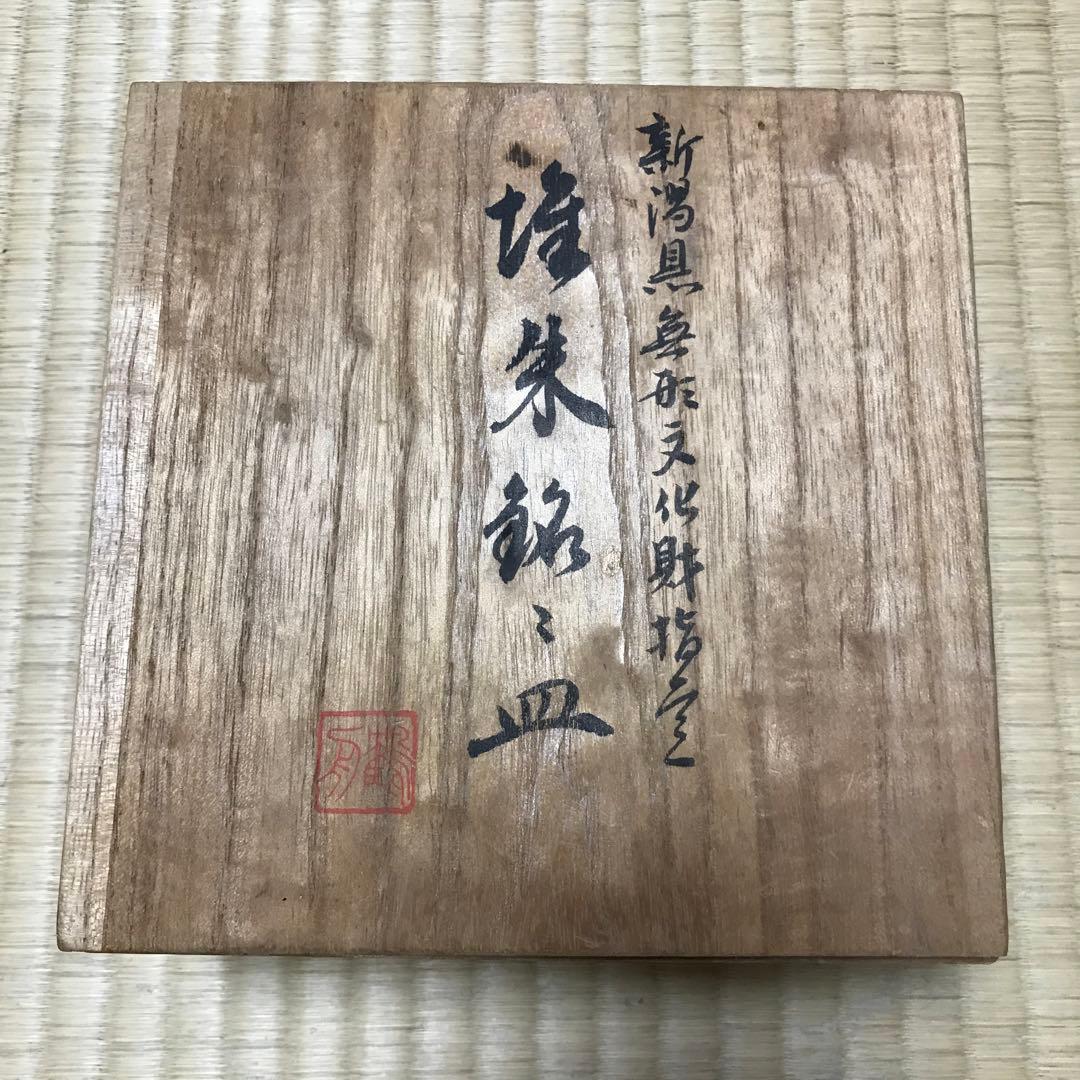 新潟県無形文化財指定
堆朱銘〻皿